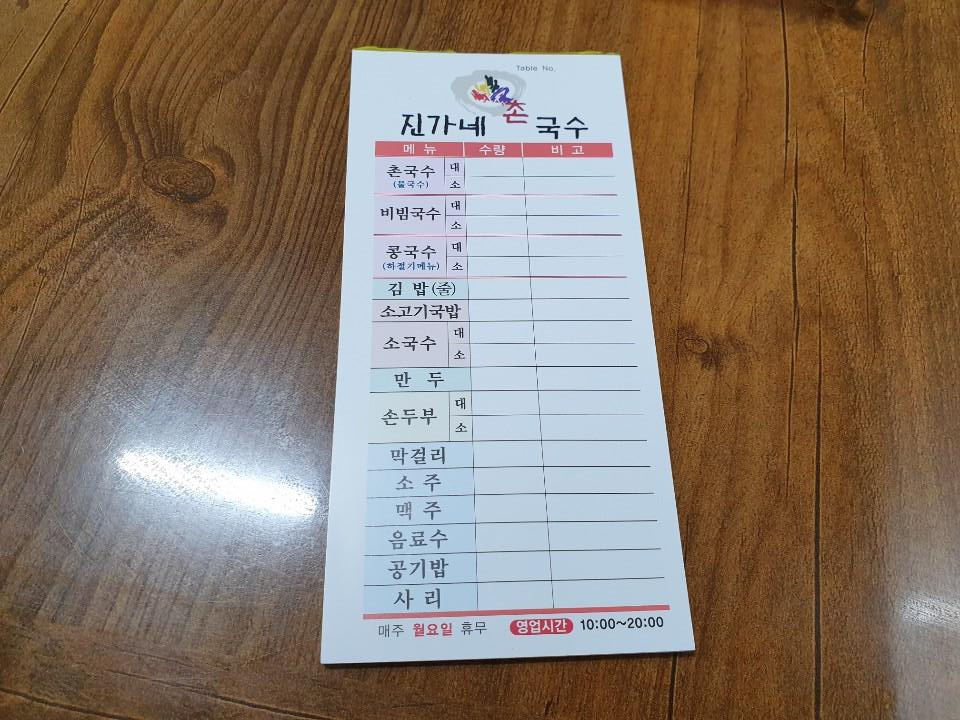 Table No.
진가네 촌 국수
메 뉴 수량 비 고
촌국수 대
(물국수) 소
비빔국수 대
소
콩국수 대
(하절기메뉴) 소
김 밥(줄)
소고기국밥
소국수 대
소
만 두
손두부 대
소
막걸리
소 주
맥 주
음료수
공기밥
사 리
매주 월요일 휴무 영업시간 10:00~20:00